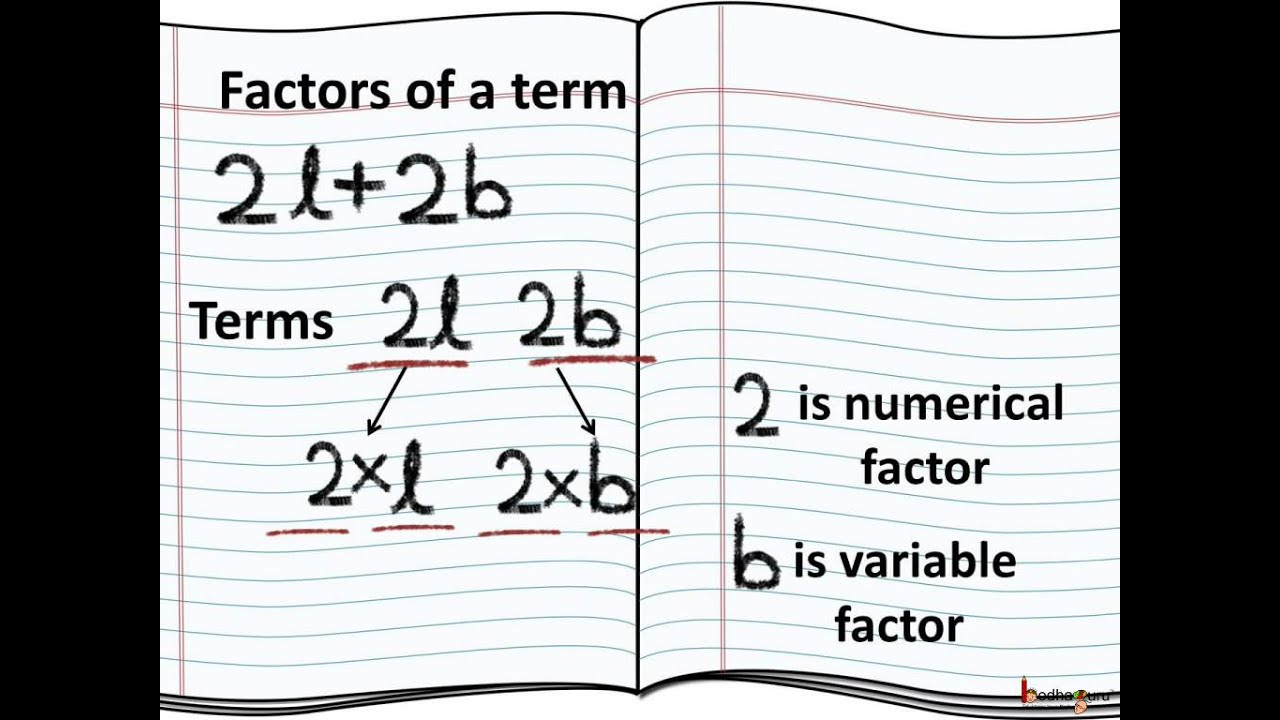 Factors of a term
2l+2b
Terms 2l 2b
2×l 2×b
2 is numerical
factor
b is variable
factor
bodhaguru